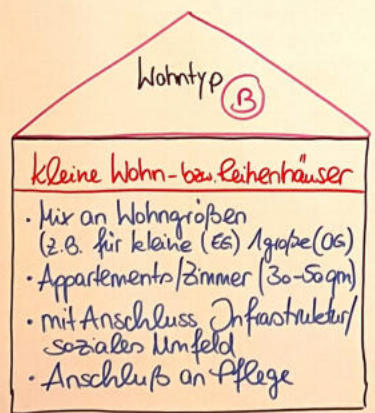 Wohntyp
B
Kleine Wohn- bzw. Reihenhäuser
• Mix an Wohngrößen
(z.B. für kleine (EG) 1 große (OG)
• Appartements/Zimmer (30-50qm)
• mit Anschluss Infrastruktur/
soziales Umfeld
• Anschluß an Pflege